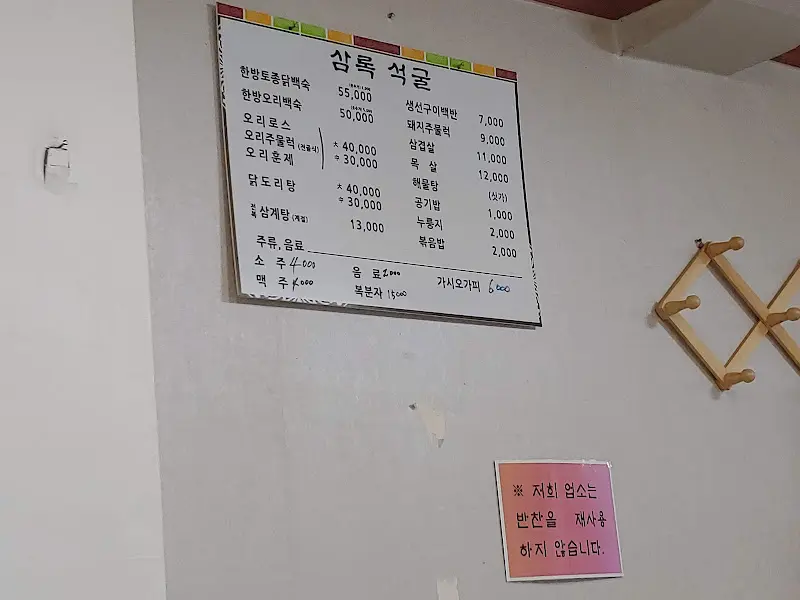 삼록 석굴
한방토종닭백숙 55,000
한방오리백숙 50,000
오리로스
오리주물럭 (전골식) 大 40,000
오리훈제 中 30,000
닭도리탕 大 40,000
中 30,000
전복 삼계탕 (계절) 13,000
생선구이백반 7,000
돼지주물럭 9,000
삼겹살 11,000
목살 12,000
해물탕 (싯가)
공기밥 1,000
누룽지 2,000
볶음밥 2,000
주류, 음료
소주 4000
음료 2000
가시오가피 6000
맥주 4000
복분자 15000
※ 저희 업소는
반찬을 재사용
하지 않습니다.